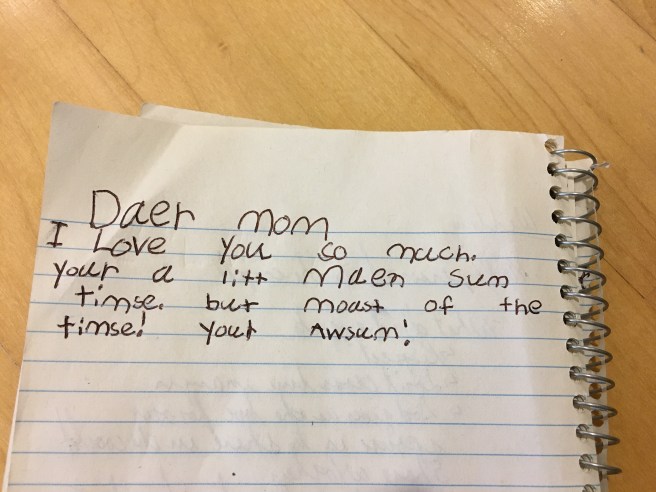 Daer mom
I Love you so much.
your a litt maen sum
timse. but moast of the
timse! your Awsum!